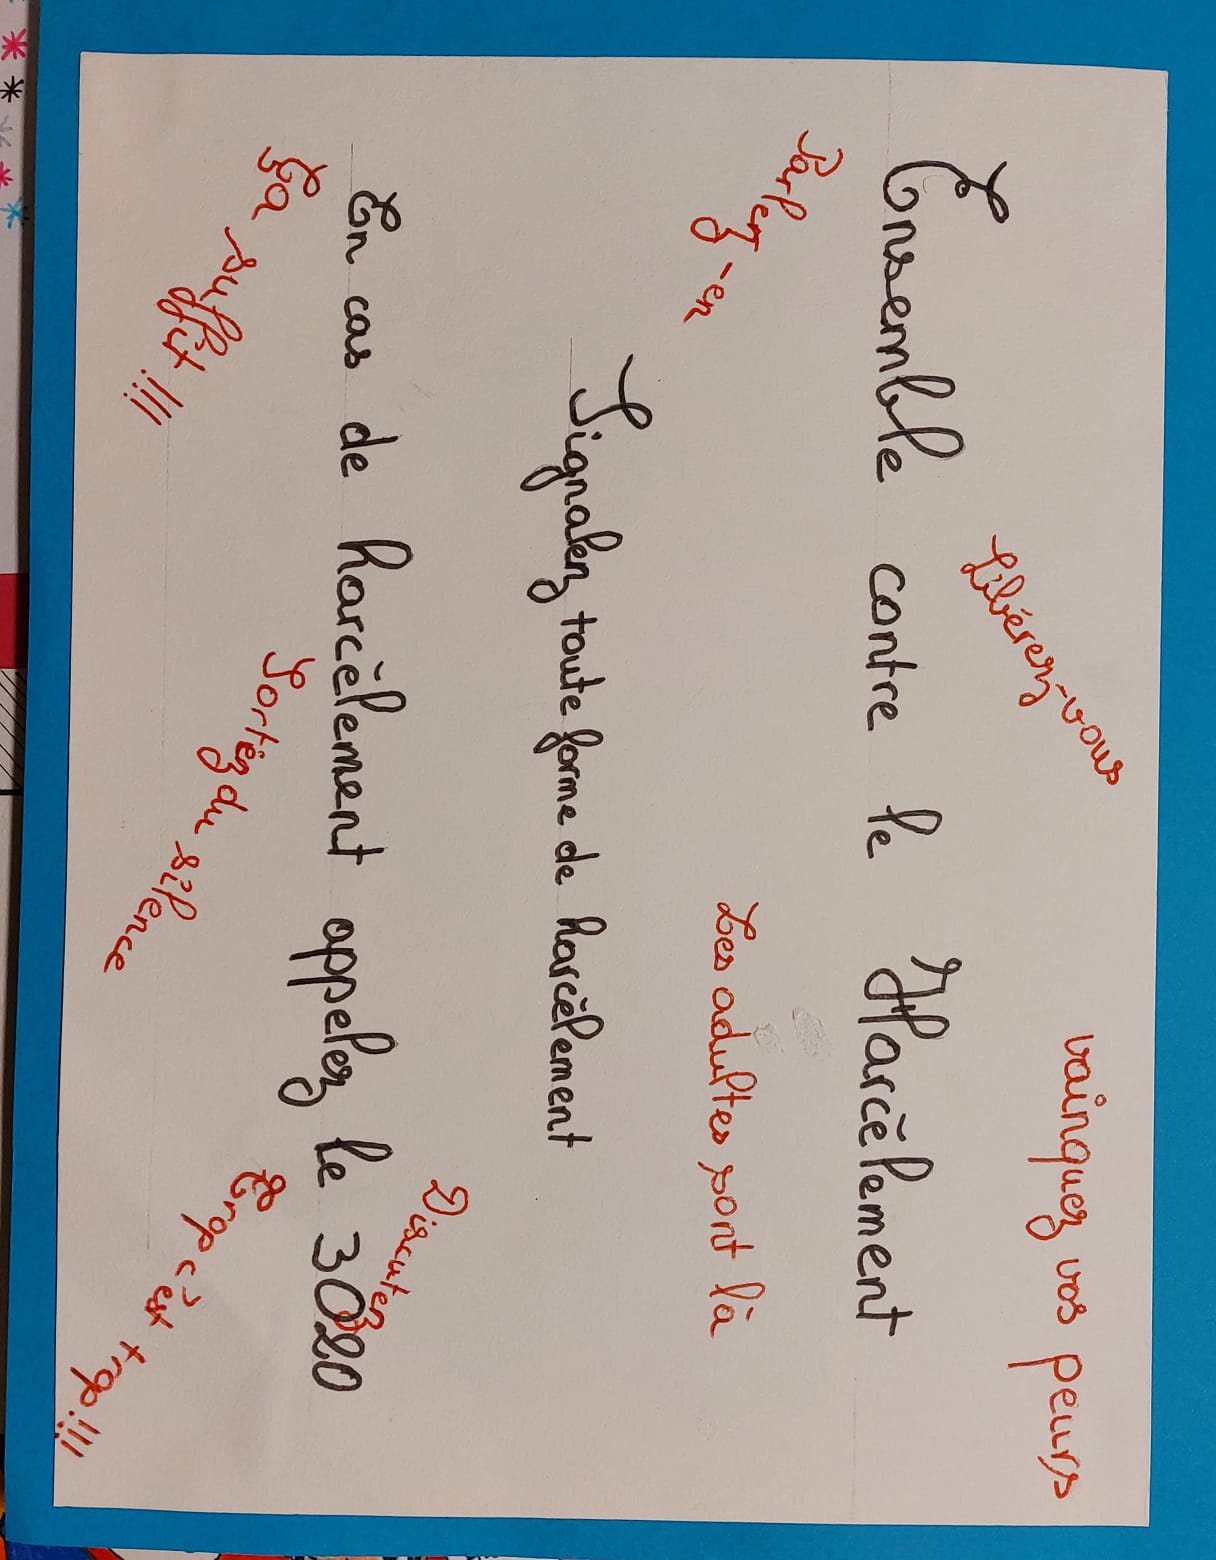 vainquez vos peurs
Libérez-vous
Ensemble contre le Harcèlement
Parlez-en
Les adultes sont là
Signalez toute forme de harcèlement
Discutez
En cas de harcèlement appelez le 3020
Ça suffit !!!
Sortez du silence
Trop c'est trop !!!